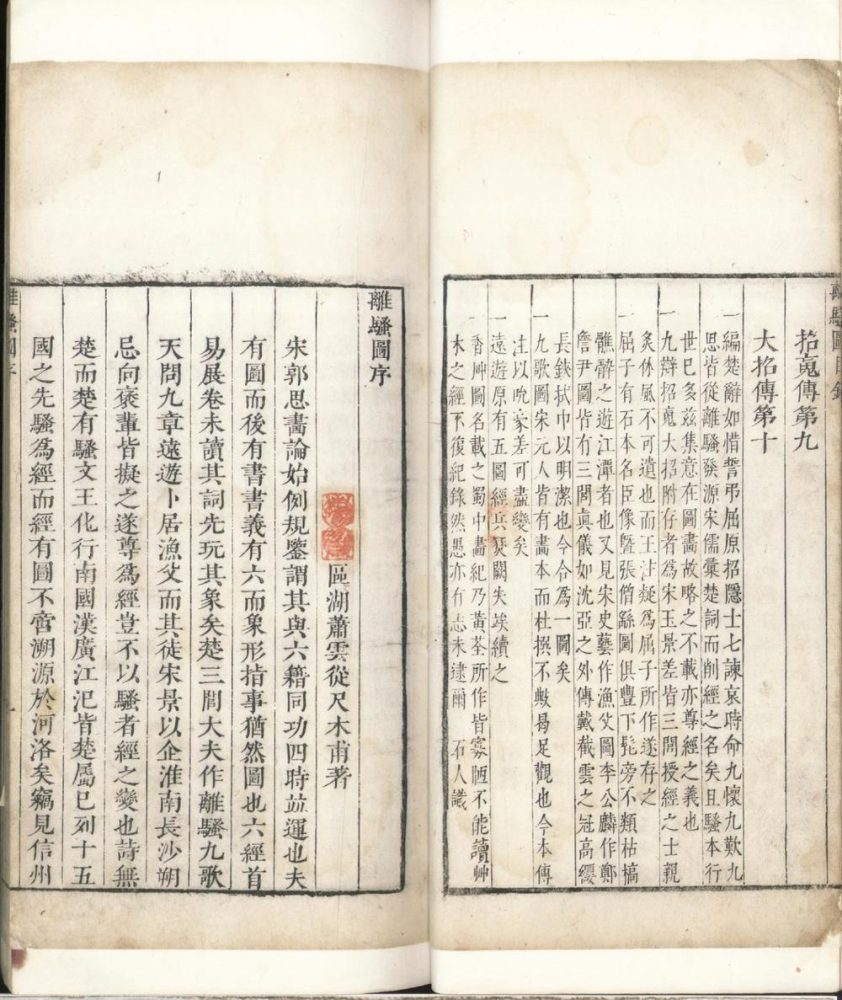 離騷圖目錄
招䰟傳第九
大招傳第十
一編楚辭如惜誓弔屈原招隱士七諫哀時命九懷九歎九
思皆從離騷發源宋儒彙楚詞而削經之名矣且騷本行
世已多兹集意在圖畫故略之不載亦尊經之義也
一九辯招䰟大招附存者為宋玉景差皆三閭授經之士親
炙休風不可遺也而王注疑為屈子所作遂存之
一屈子有石本名臣像暨張僧繇圖俱豐下髭旁不類枯槁
憔醉之遊江潭者也又見宋史藝作漁父圖李公麟作鄭
詹尹圖皆有三閭真儀如沈亞之外傳戴截雲之冠高纓
長鋏拭巾以明潔也今合為一圖矣
一九歌圖宋元人皆有畫本而杜撰不敷曷足觀也今本傳
注以吮豪差可盡變矣
一遠遊原有五圖經兵燹闕失竢續之
一香艸圖名載之蜀中畵紀乃黃荃所作皆寡陋不能讀艸
木之經不復紀錄然愚亦有志未逮爾 石人識
離騷圖序
區湖蕭雲從尺木甫著
宋郭思畵論始例規鑒謂其與六籍同功四時竝運也夫
有圖而後有書書義有六而象形指事猶然圖也六經首
易展卷未讀其詞先玩其象矣楚三閭大夫作離騷九歌
天問九章遠遊卜居漁父而其徒宋景以企淮南長沙朔
忌向褒輩皆擬之遂尊為經豈不以騷者經之變也詩無
楚而楚有騷文王化行南國漢廣江汜皆楚屬已列十五
國之先騷為經而經有圖不啻溯源於河洛矣竊見信州
離騷圖序
一